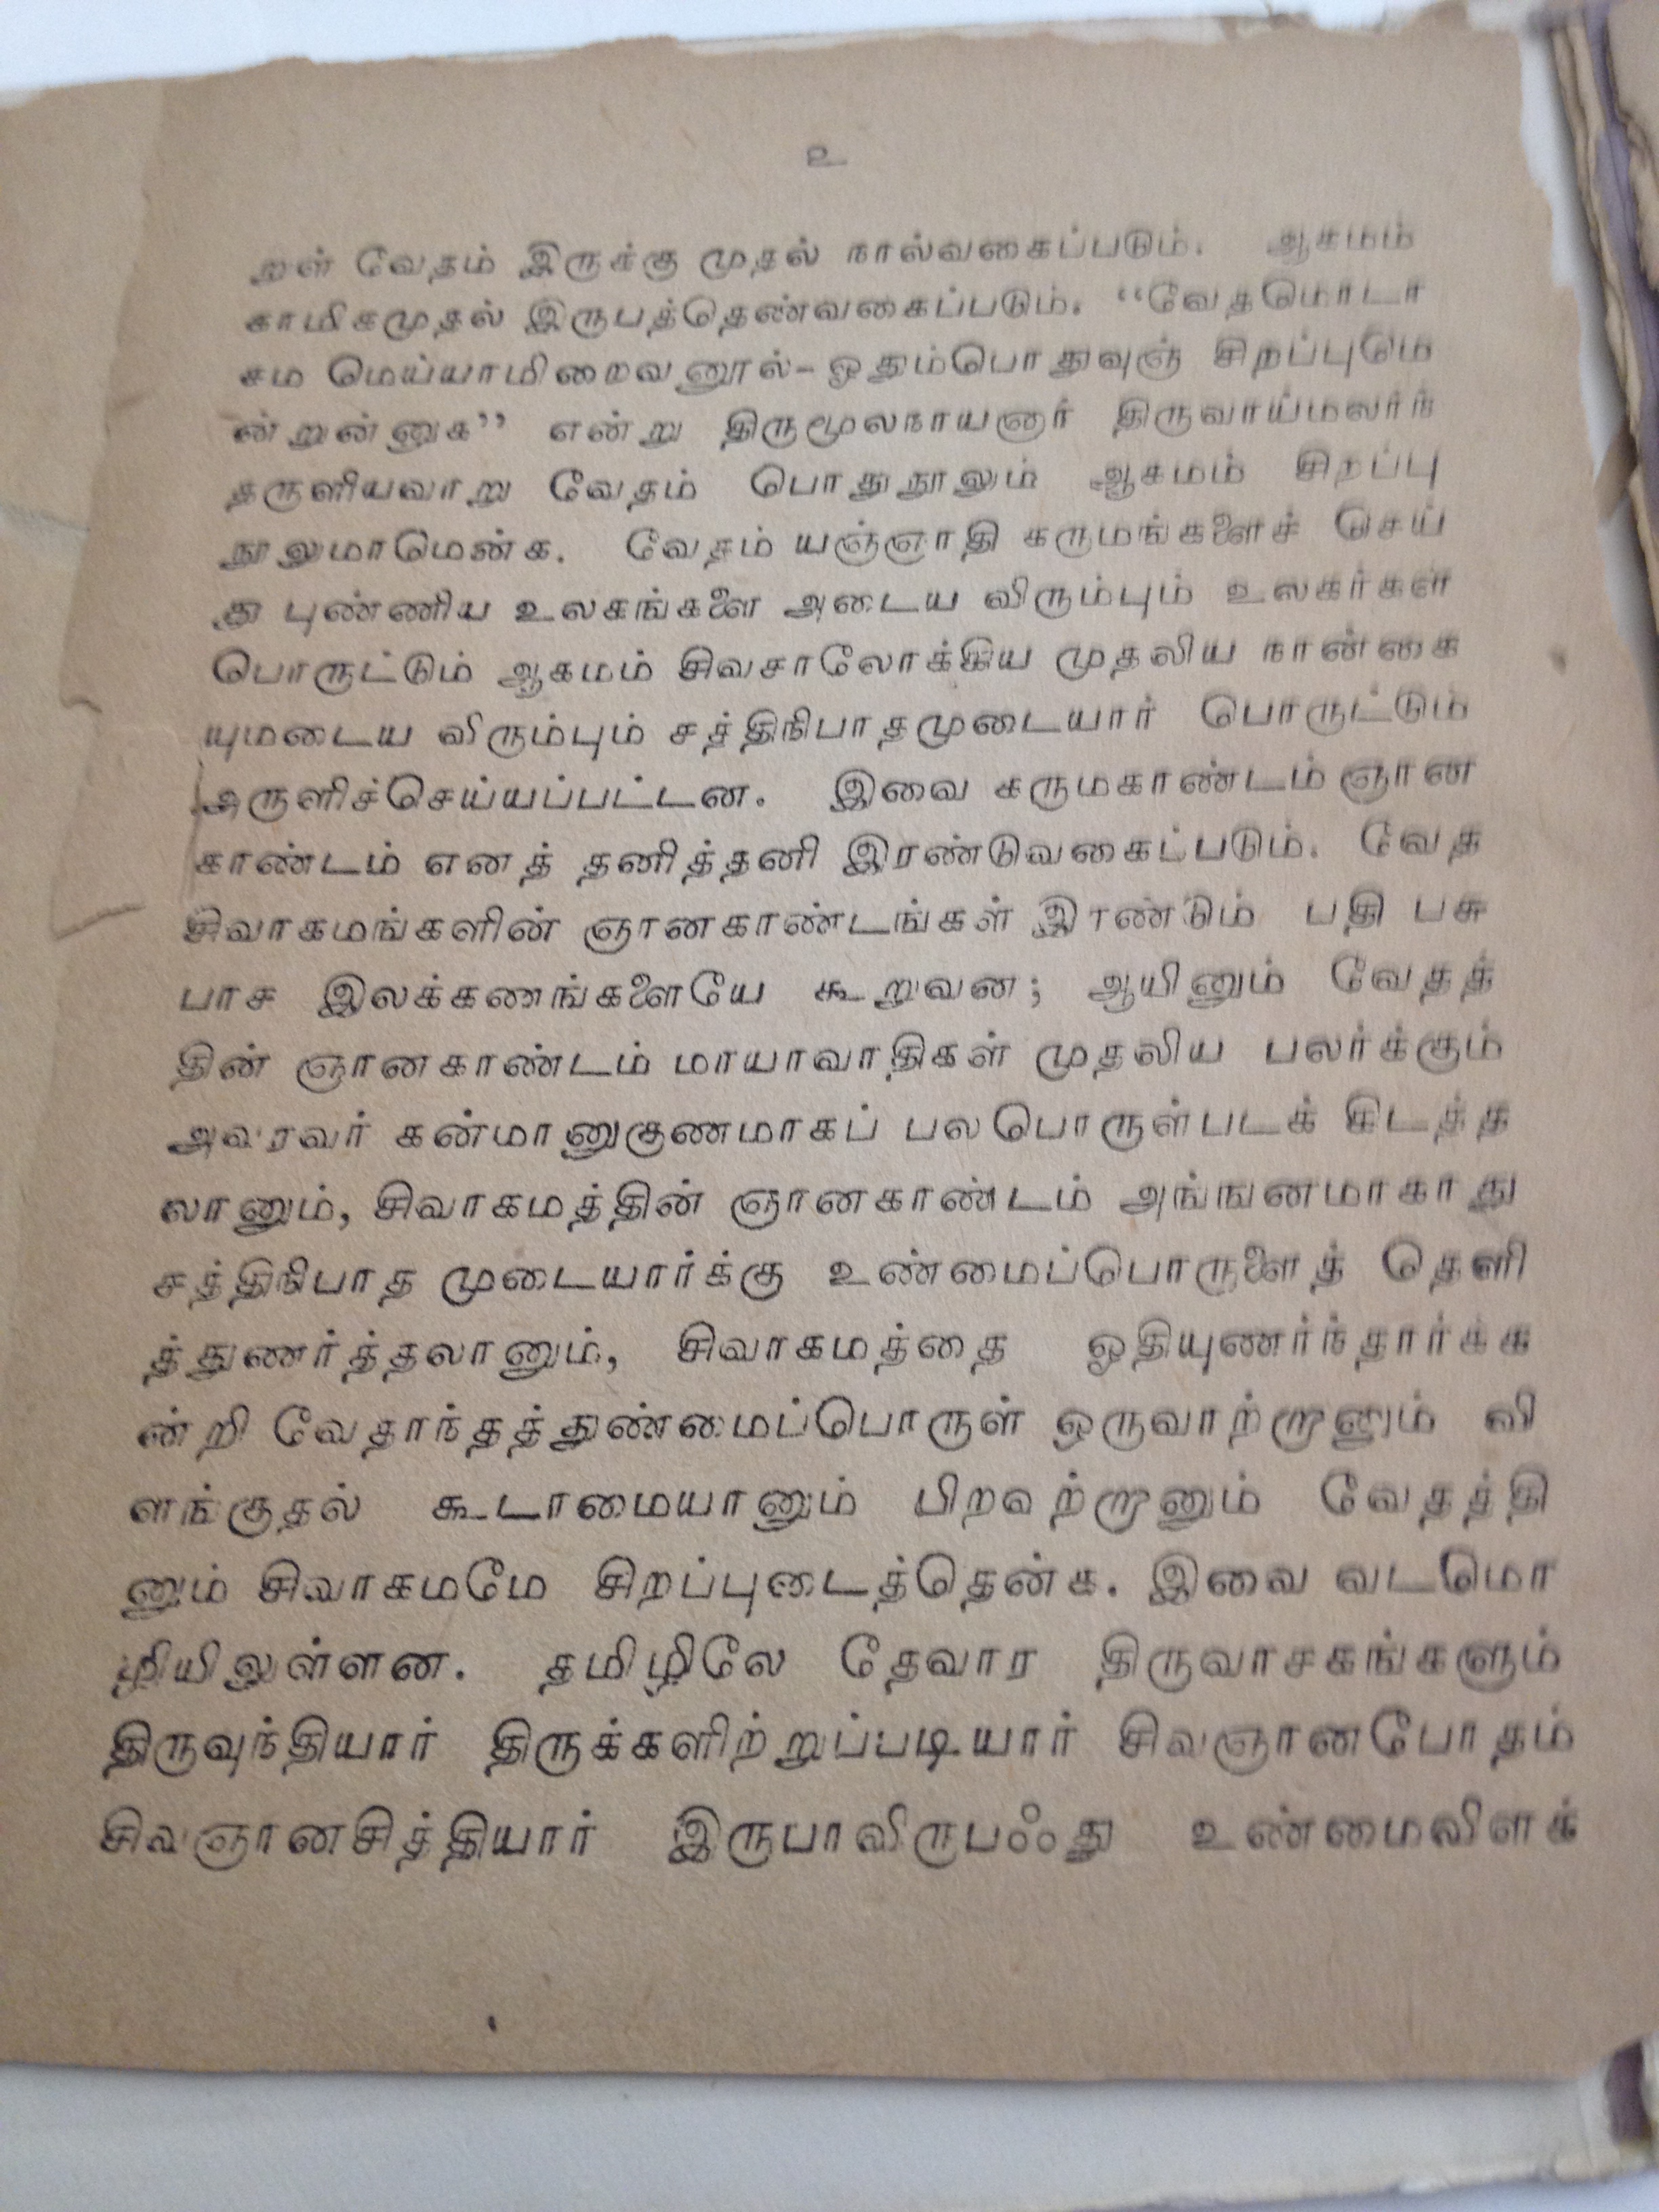 உ
றுள் வேதம் இருக்கு முதல் நால்வகைப்படும். ஆகமம்
காமிகமுதல் இருபத்தெண்வகைப்படும். “வேதமொடா
கம மெய்யாமிறைவனூல்-ஓதும்பொதுவுஞ் சிறப்புமே
ன்றுன்னுக” என்று திருமூலநாயனார் திருவாய்மலர்ந்
தருளியவாறு வேதம் பொதுநூலும் ஆகமம் சிறப்பு
நூலுமாமென்க. வேதம் யஞ்ஞாதி கருமங்களைச் செய்
து புண்ணிய உலகங்களை அடைய விரும்பும் உலகர்கள்
பொருட்டும் ஆகமம் சிவசாலோக்கிய முதலிய நான்கை
யுமடைய விரும்பும் சத்திநிபாதமுடையார் பொருட்டும்
அருளிச்செய்யப்பட்டன. இவை கருமகாண்டம் ஞான
காண்டம் எனத் தனித்தனி இரண்டுவகைப்படும். வேத
சிவாகமங்களின் ஞானகாண்டங்கள் இரண்டும் பதி பசு
பாச இலக்கணங்களையே கூறுவன; ஆயினும் வேதத்
தின் ஞானகாண்டம் மாயாவாதிகள் முதலிய பலர்க்கும்
அவரவர் கன்மானுகுணமாகப் பலபொருள்படக் கிடத்த
லானும், சிவாகமத்தின் ஞானகாண்டம் அங்ஙனமாகாது
சத்திநிபாத முடையார்க்கு உண்மைப்பொருளைத் தெளி
த்துணர்த்தலானும், சிவாகமத்தை ஓதியுணர்ந்தார்க்க
ன்றி வேதாந்தத்துண்மைப்பொருள் ஒருவாற்றானும் வி
ளங்குதல் கூடாமையானும் பிறவற்றானும் வேதத்தி
னும் சிவாகமமே சிறப்புடைத்தென்க. இவை வடமொ
ழியிலுள்ளன. தமிழிலே தேவார திருவாசகங்களும்
திருவுந்தியார் திருக்களிற்றுப்படியார் சிவஞானபோதம்
சிவஞானசித்தியார் இருபாவிருபஃது உண்மைவிளக்